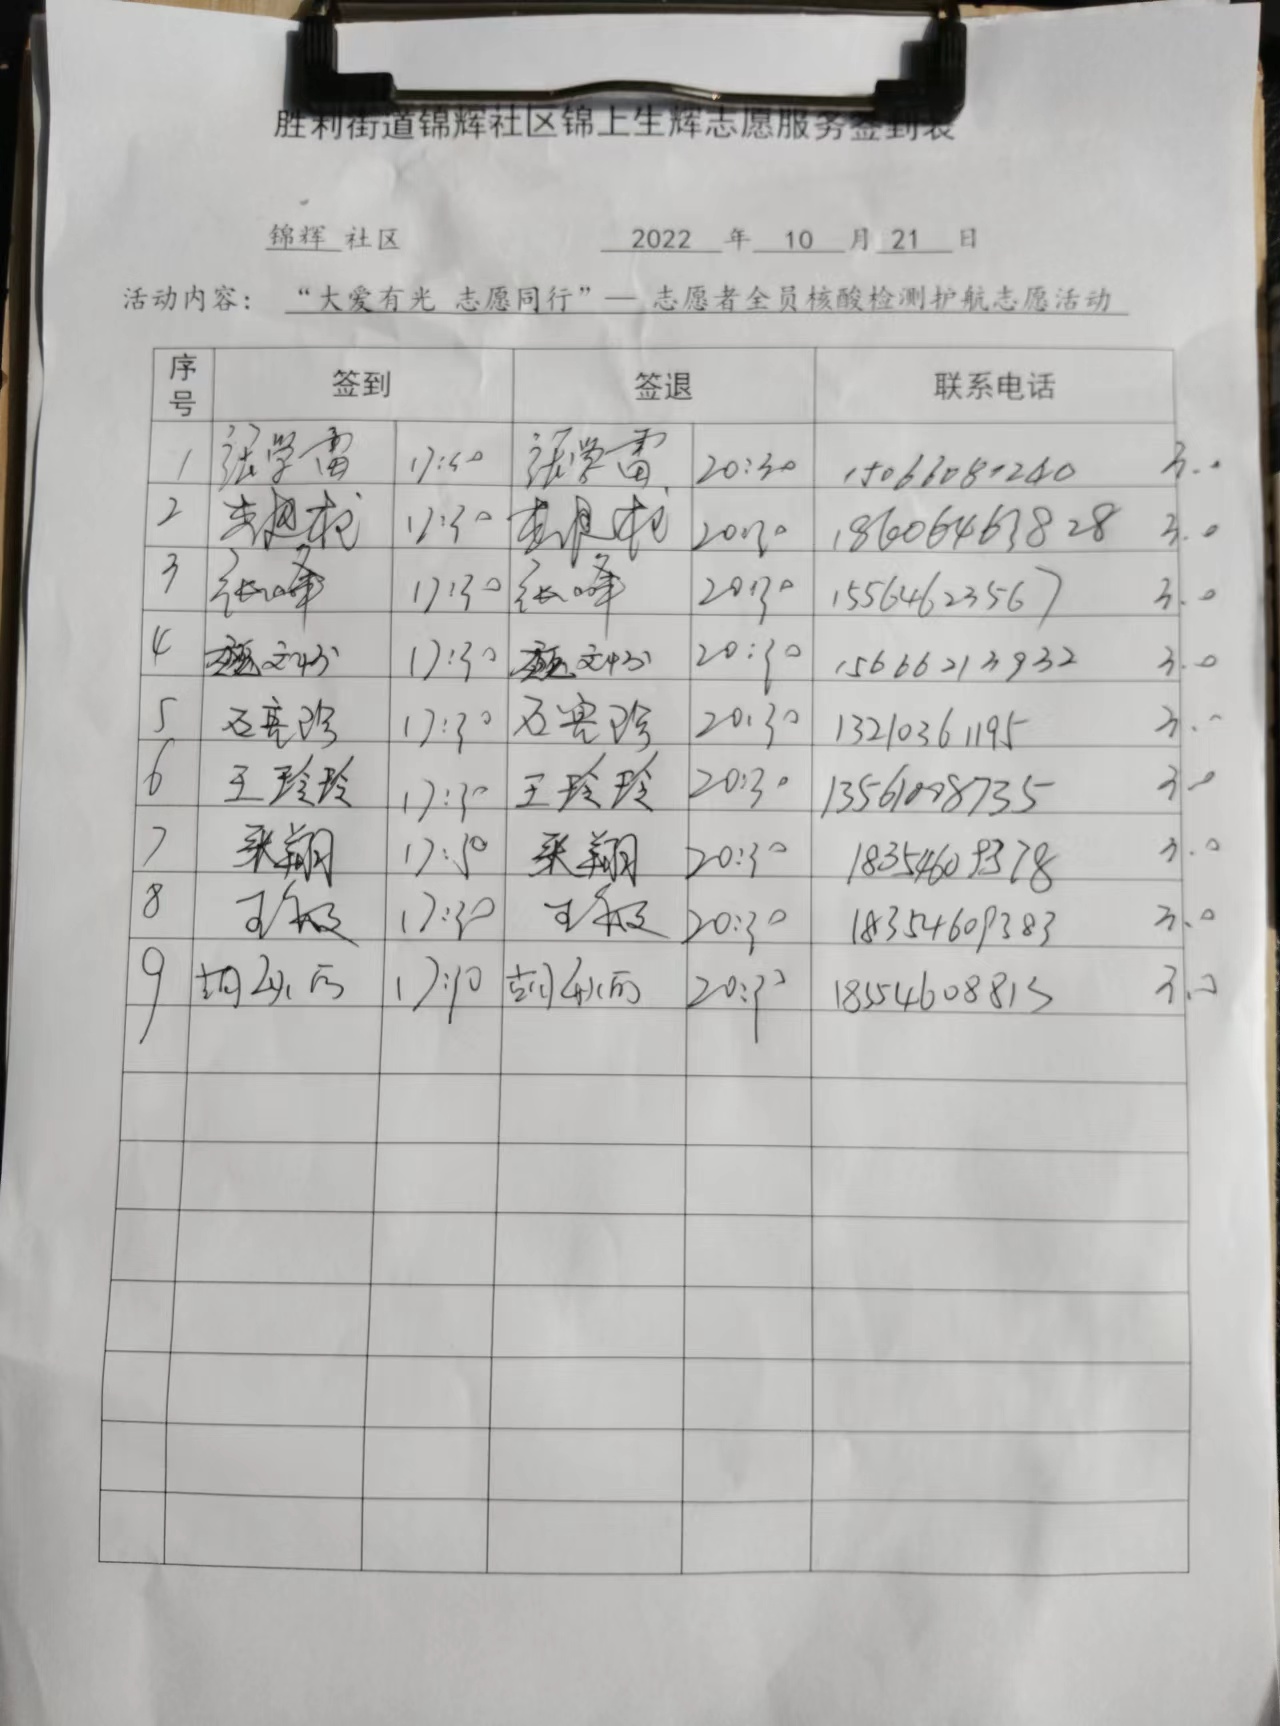 胜利街道锦辉社区锦上生辉志愿服务签到表
锦辉 社区 2022 年 10 月 21 日
活动内容: “大爱有光 志愿同行”— 志愿者全员核酸检测护航志愿活动
序号 签到 签退 联系电话
1 张学雷 17:30 张学雷 20:30 3.0
2 17:30 20:30 3.0
3 张峰 17:30 张峰 20:30 15564623567 3.0
4 17:30 20:30 15666213932 3.0
5 石亮珍 17:30 石亮珍 20:30 13210361195 3.0
6 王玲玲 17:30 王玲玲 20:30 3.0
7 张翔 17:30 张翔 20:30 18354609378 3.0
8 王敏 17:30 王敏 20:30 18354609383 3.0
9 17:30 20:30 3.0